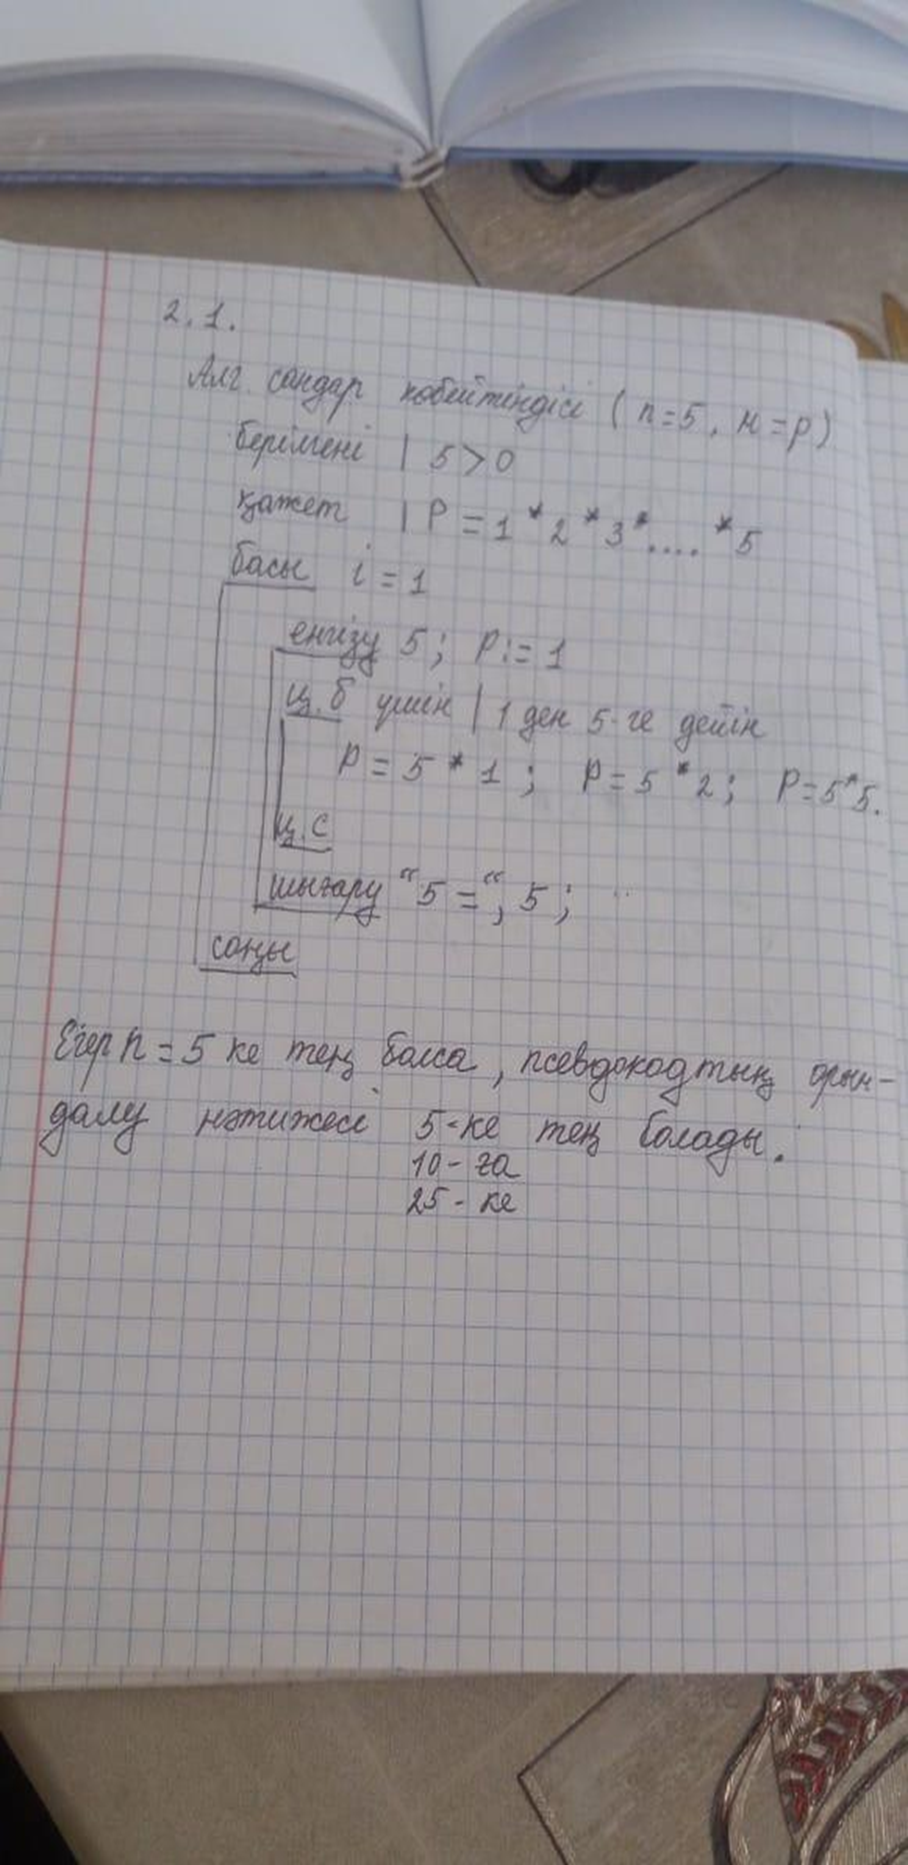 2.1.
Алг. сандар көбейтіндісі ( n=5, н=p)
берілгені | 5>0
қажет | P = 1 * 2 * 3 * .... * 5
басы i = 1
енгізу 5 ; P := 1
ц.б үшін | 1 ден 5-ге дейін
P = 5 * 1 ; P = 5 * 2 ; P = 5 * 5.
ц.с
шығару “5 =“, 5 ;
соңы
Егер n = 5 ке тең болса, псевдокодтың орын-
далу нәтижесі 5-ке тең болады.
10 - ға
25 - ке